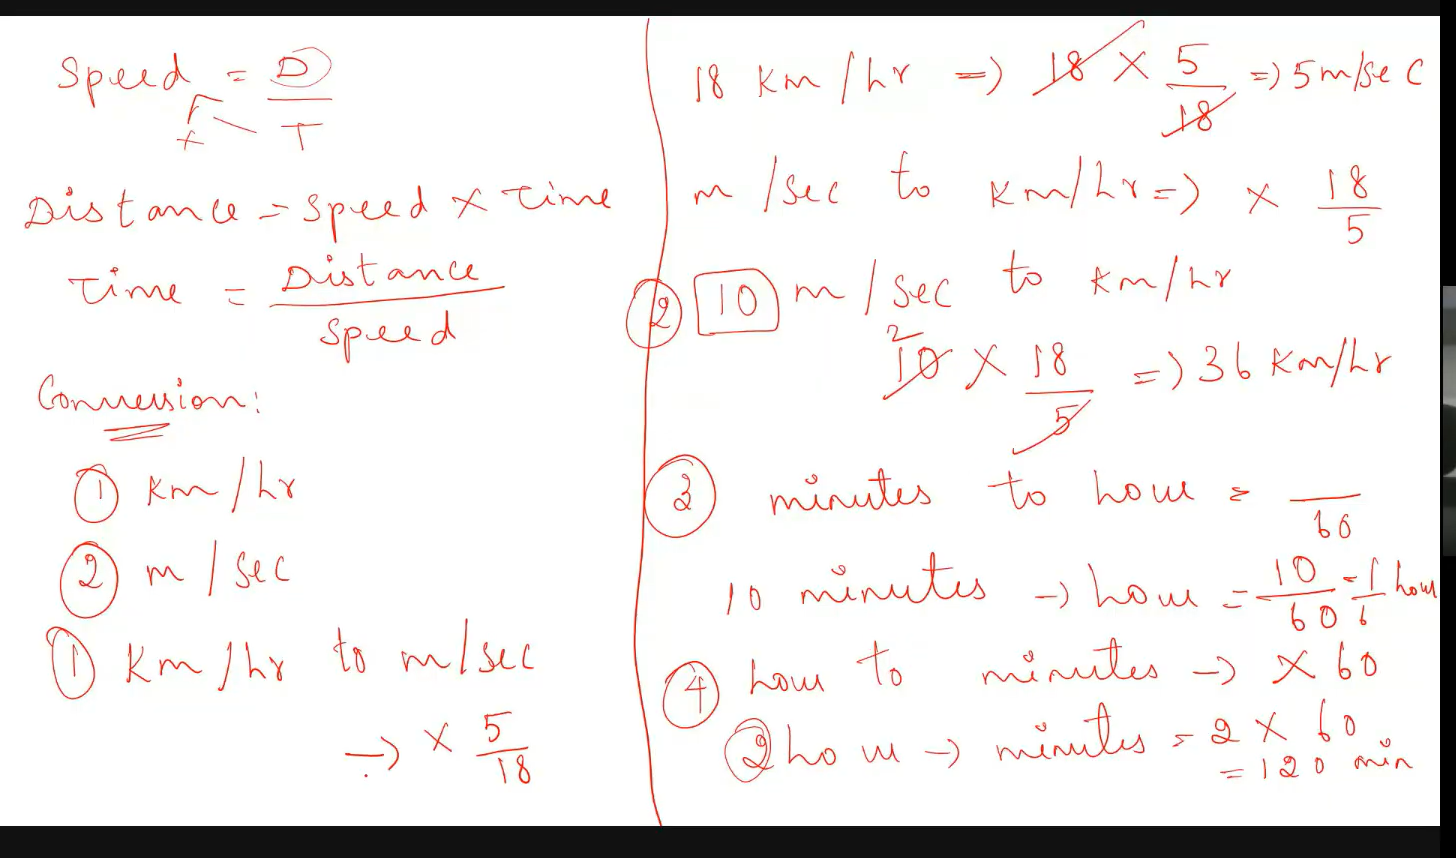 Speed = D
T
×
Distance = Speed × Time
Time = Distance
Speed
Conversion:
① Km/hr
② m/sec
① Km/hr to m/sec
→ × 5
18
18 Km/hr ⇒ 18 × 5 ⇒ 5 m/sec
18
m/sec to Km/hr ⇒ × 18
5
② 10 m/sec to Km/hr
2
10 × 18 ⇒ 36 Km/hr
5
③ minutes to hour =
60
10 minutes → hour = 10 = 1 hour
60 6
④ hour to minutes → × 60
2 hour → minutes = 2 × 60
= 120 min